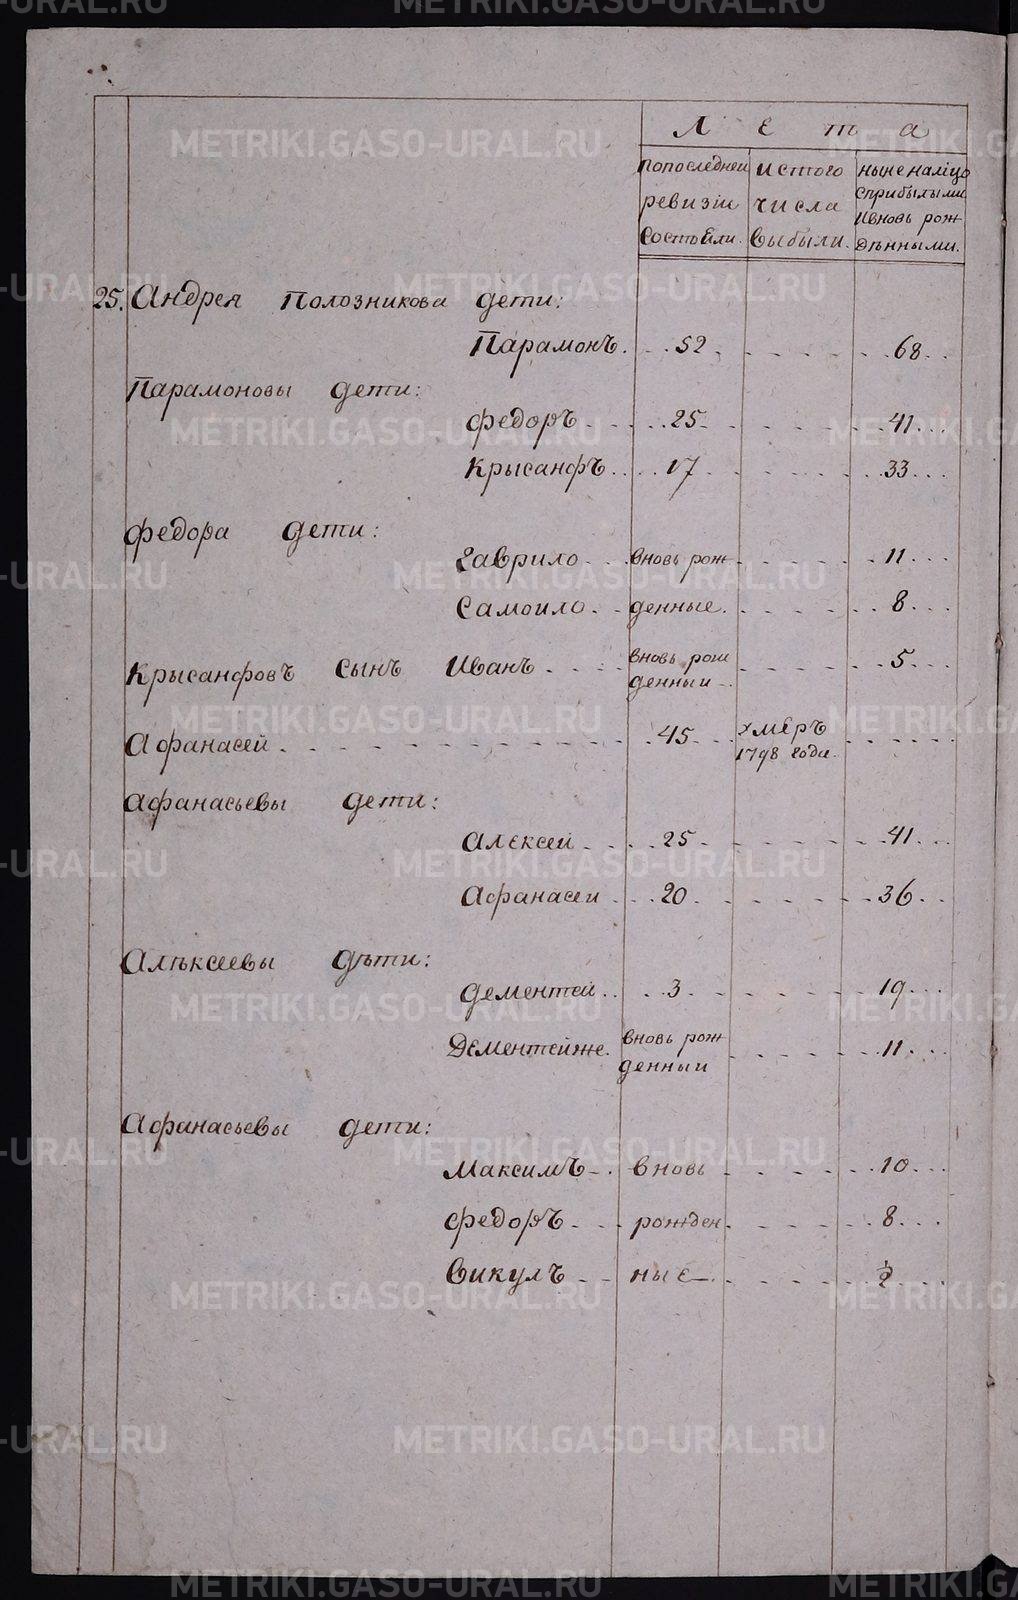 Л е т а
попоследнеи ревизiи состояли.
истого числа выбыли.
ныне налiцо сприбылыми ивновь рожденными.
25. Андрея Полозникова дети:
Парамонъ. 52. 68.
Парамоновы дети:
Федоръ 25. 41.
Крысанфъ. 17. 33.
Федора дети:
Гаврило вновь рож 11.
Самоило денные. 8.
Крысанфовъ сынъ Иванъ вновь рож 5.
денныи
Афанасей 45 умеръ
1798 года.
Афанасьевы дети:
Алексей 25 41.
Афанасеи 20. 36.
Алѣксеевы дѣти:
Дементей 3. 19.
Дементейже. вновь рож 11.
денныи
Афанасьевы дети:
Максимъ вновь 10.
Федоръ рожден 8.
Викулъ ные
METRIKI.GASO-URAL.RU